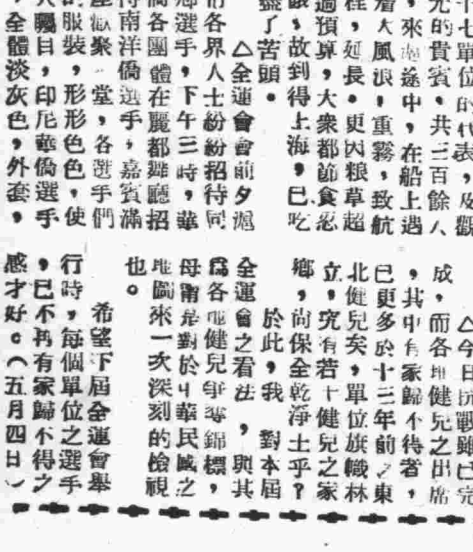 十七單位的代表，及觀
光的貴賓，共三百餘人
，來滬途中，在船上遇
大風浪，重霧，致航
程，延長。更因粮草超
過預算，大衆都節食忍
餓，故到得上海，已吃
盡了苦頭。
△全運會會前夕滬
市各界人士紛紛招待同
鄉選手，下午三時，華
僑各團體在麗都舞廳招
待南洋僑選手，嘉賓滿
座歡聚一堂，各選手們
的服裝，形形色色，使
人矚目，印尼華僑選手
全體淡灰色，外套，
△今日抗戰雖已完
成，而各地健兒之出席
，其中有家歸不得者，
已更多於十三年前之東
北健兒矣，單位旗幟林
立，究有若干健兒之家
鄉，尚保全乾淨土乎？
於此，我對本屆
全運會之看法，與其
爲各地健兒爭奪錦標，
毋甯是對於中華民國之
地圖來一次深刻的檢視
也。
希望下屆全運會舉
行時，每個單位之選手
，已不再有家歸不得之
感才好。（五月四日）